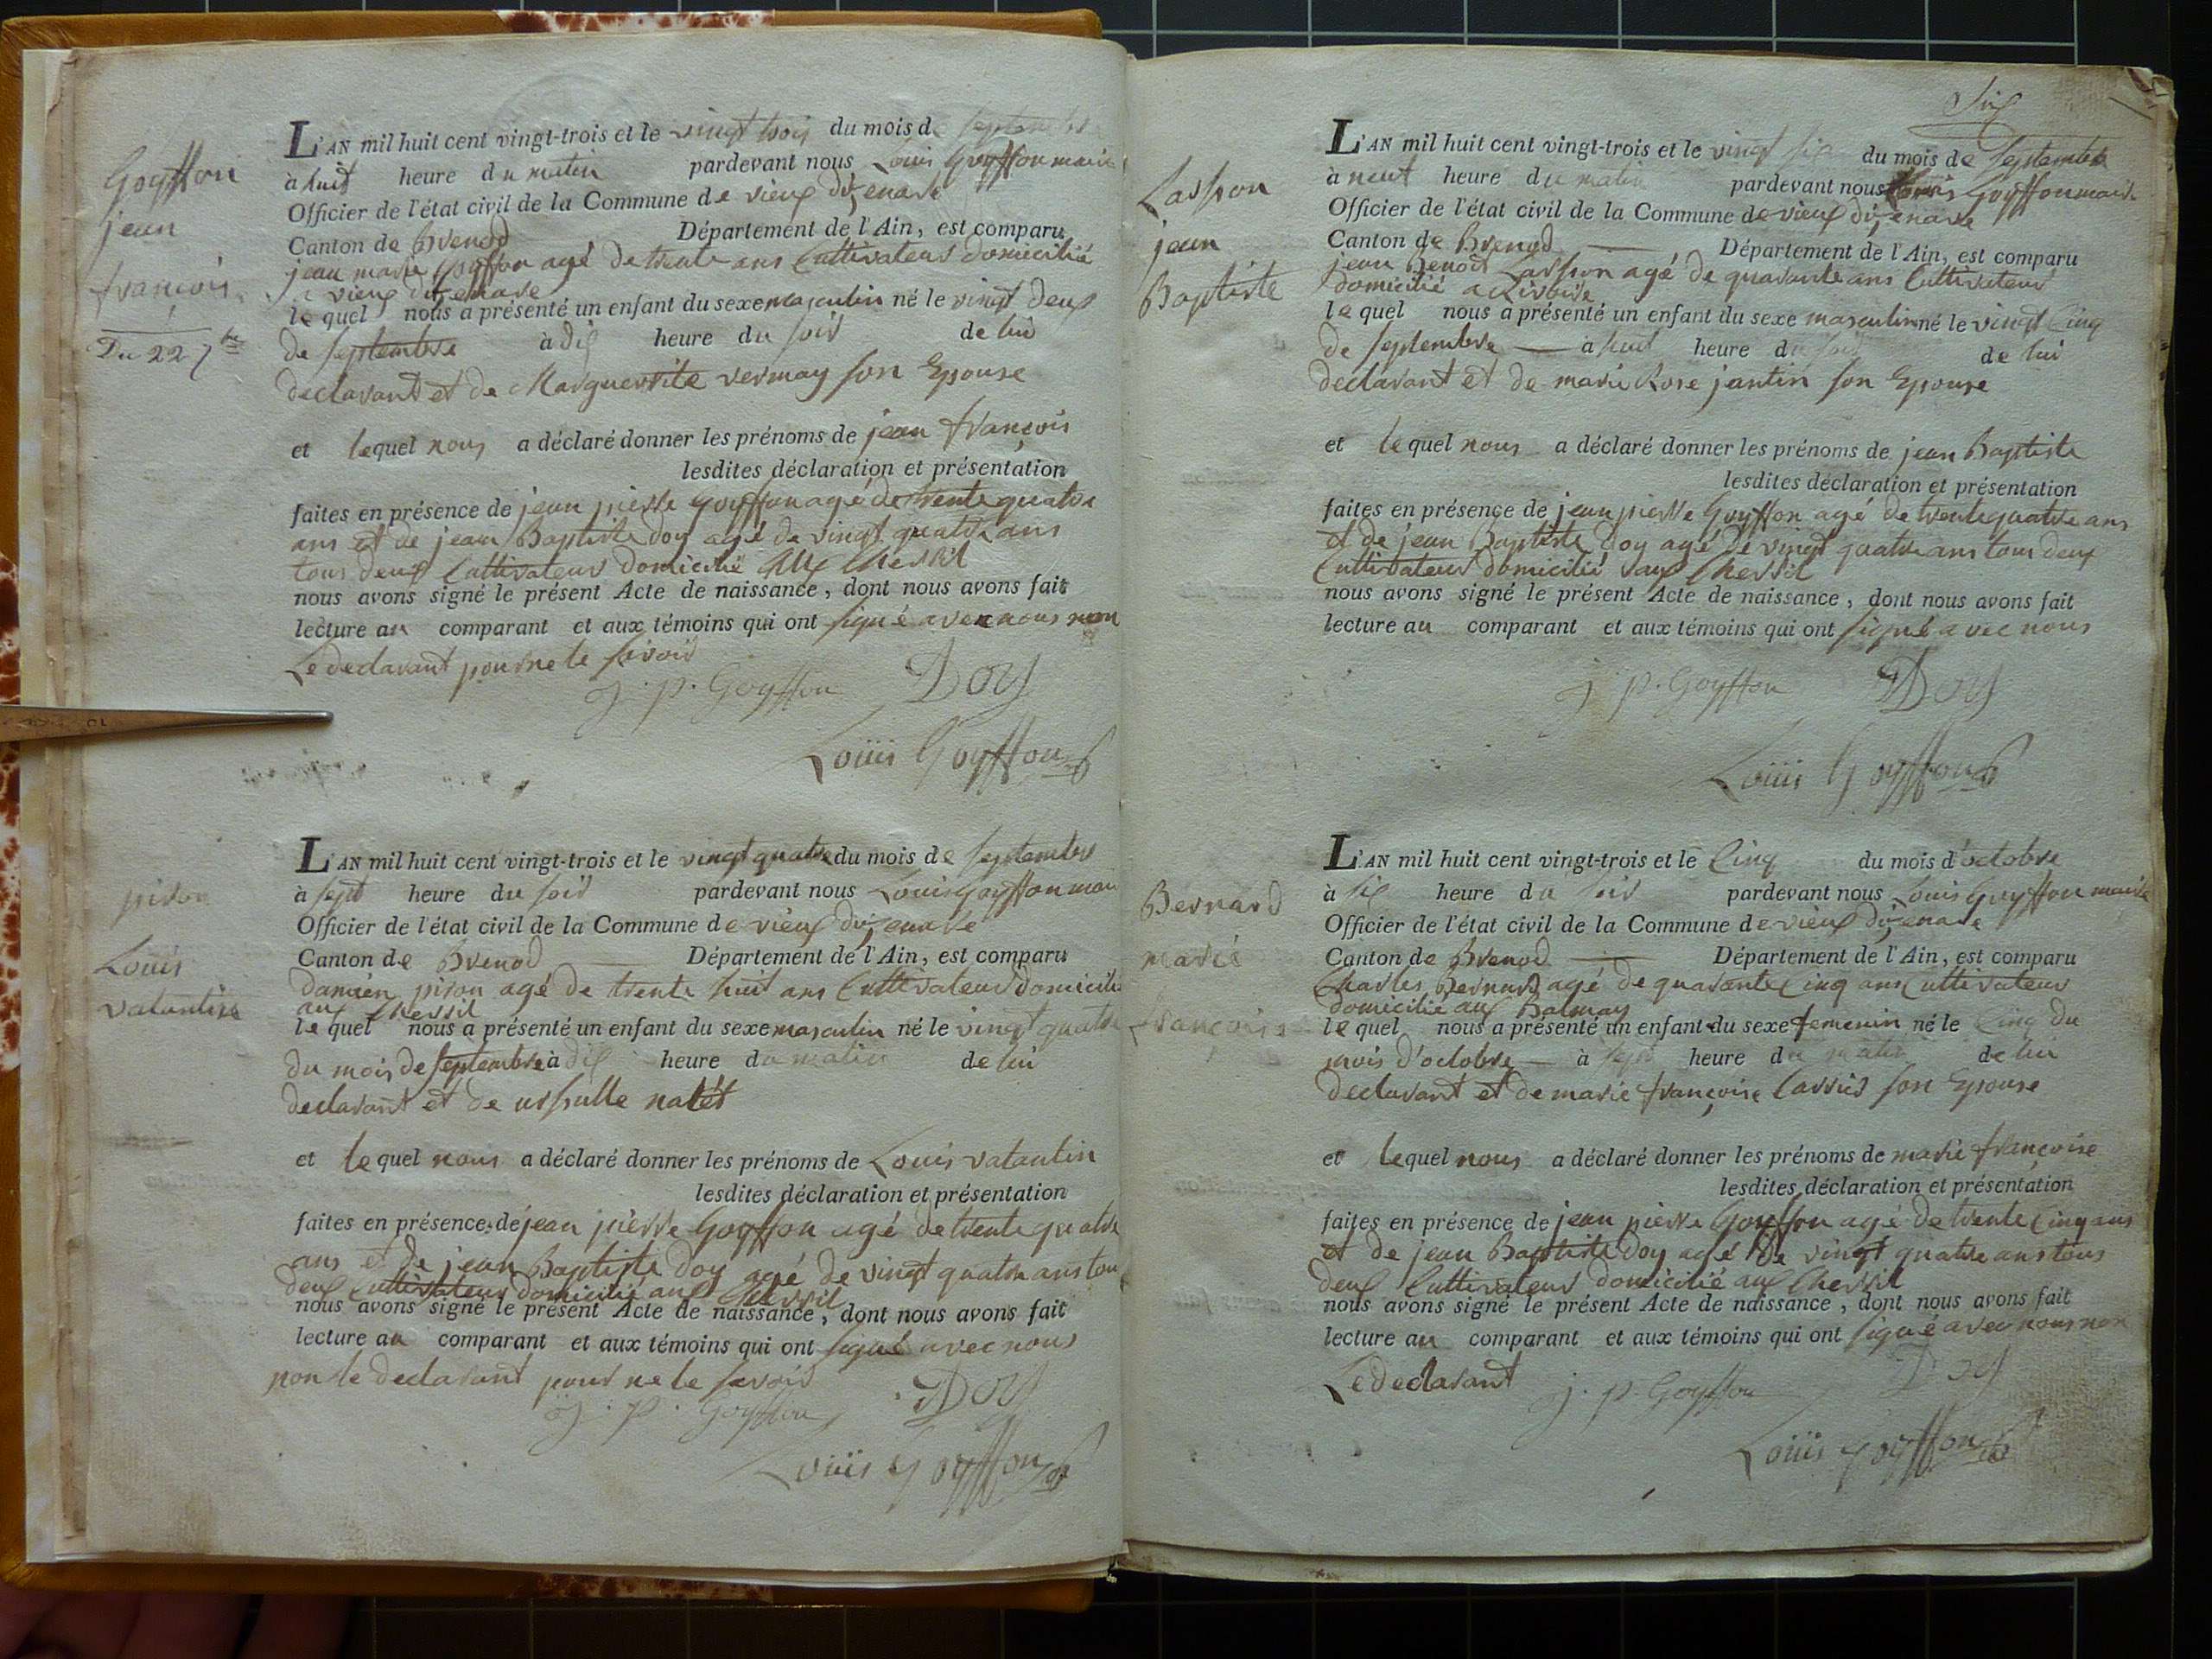 Goyffon
jean
françois
Du 22 7bre
L'AN mil huit cent vingt-trois et le vingt trois du mois de septembre
à huit heure du matin pardevant nous Louis Goyffon maire
Officier de l'état civil de la Commune de vieux d'izenave
Canton de Brenod Département de l'Ain, est comparu
jean marie Goyffon agé de trente ans Cultivateur domicilié
a vieux d'izenave
lequel nous a présenté un enfant du sexe masculin né le vingt deux
de septembre à dix heure du soir de lui
declarant et de Marguerite vermay son Epouse
et lequel nous a déclaré donner les prénoms de jean françois
lesdites déclaration et présentation
faites en présence de jean pierre goyffon agé de trente quatre
ans et de jean Baptiste doy agé de vingt quatre ans
tous deux Cultivateur domicilié aux Chevril
nous avons signé le présent Acte de naissance, dont nous avons fait
lecture au comparant et aux témoins qui ont signé avec nous non
Le declarant pour ne le savoir
j. p. Goyffon Doy
Louis Goyffon
piron
Louis
valantin
L'AN mil huit cent vingt-trois et le vingt quatre du mois de septembre
à sept heure du soir pardevant nous Louis Goyffon mair
Officier de l'état civil de la Commune de vieux d'izenave
Canton de Brenod Département de l'Ain, est comparu
damien piron agé de trente huit ans Cultivateur domicilié
aux Chevril
lequel nous a présenté un enfant du sexe masculin né le vingt quatre
du mois de septembre à dix heure du matin de lui
declarant et de
et lequel nous a déclaré donner les prénoms de Louis valantin
lesdites déclaration et présentation
faites en présence de jean pierre Goyffon agé de trente quatre
ans et de jean Baptiste doy agé de vingt quatre ans tou
deux Cultivateur domicilié aux Chevril
nous avons signé le présent Acte de naissance, dont nous avons fait
lecture au comparant et aux témoins qui ont signé avec nous
non le declarant pour ne le savoir
j. p. Goyffon Doy
Louis Goyffon
Six
Lasson
jean
Baptiste
L'AN mil huit cent vingt-trois et le vingt six du mois de septembre
à neuf heure du matin pardevant nous Louis Goyffon maire
Officier de l'état civil de la Commune de vieux d'izenave
Canton de Brenod Département de l'Ain, est comparu
jean Benoit Lasson agé de quarante ans Cultivateur
domicilié a
lequel nous a présenté un enfant du sexe masculin né le vingt Cinq
de septembre à huit heure du soir de lui
declarant et de marie Rose jantin son Epouse
et lequel nous a déclaré donner les prénoms de jean Baptiste
lesdites déclaration et présentation
faites en présence de jean pierre Goyffon agé de trente quatre ans
et de jean Baptiste doy agé de vingt quatre ans tous deux
Cultivateur domicilié aux Chevril
nous avons signé le présent Acte de naissance, dont nous avons fait
lecture au comparant et aux témoins qui ont signé avec nous
j. p. Goyffon Doy
Louis Goyffon
Bernard
marie
françoise
L'AN mil huit cent vingt-trois et le Cinq du mois d'octobre
à six heure du soir pardevant nous Louis Goyffon maire
Officier de l'état civil de la Commune de vieux d'izenave
Canton de Brenod Département de l'Ain, est comparu
Charles Bernard agé de quarante Cinq ans Cultivateur
domicilié aux Balmay
lequel nous a présenté un enfant du sexe femenin né le Cinq du
mois d'octobre à sept heure du matin de lui
declarant et de marie françoise Carrier son Epouse
et lequel nous a déclaré donner les prénoms de marie françoise
lesdites déclaration et présentation
faites en présence de jean pierre Goyffon agé de trente Cinq ans
et de jean Baptiste doy agé de vingt quatre ans tous
deux Cultivateur domicilié aux Chevril
nous avons signé le présent Acte de naissance, dont nous avons fait
lecture au comparant et aux témoins qui ont signé avec nous non
Le declarant
j. p. Goyffon Doy
Louis Goyffon